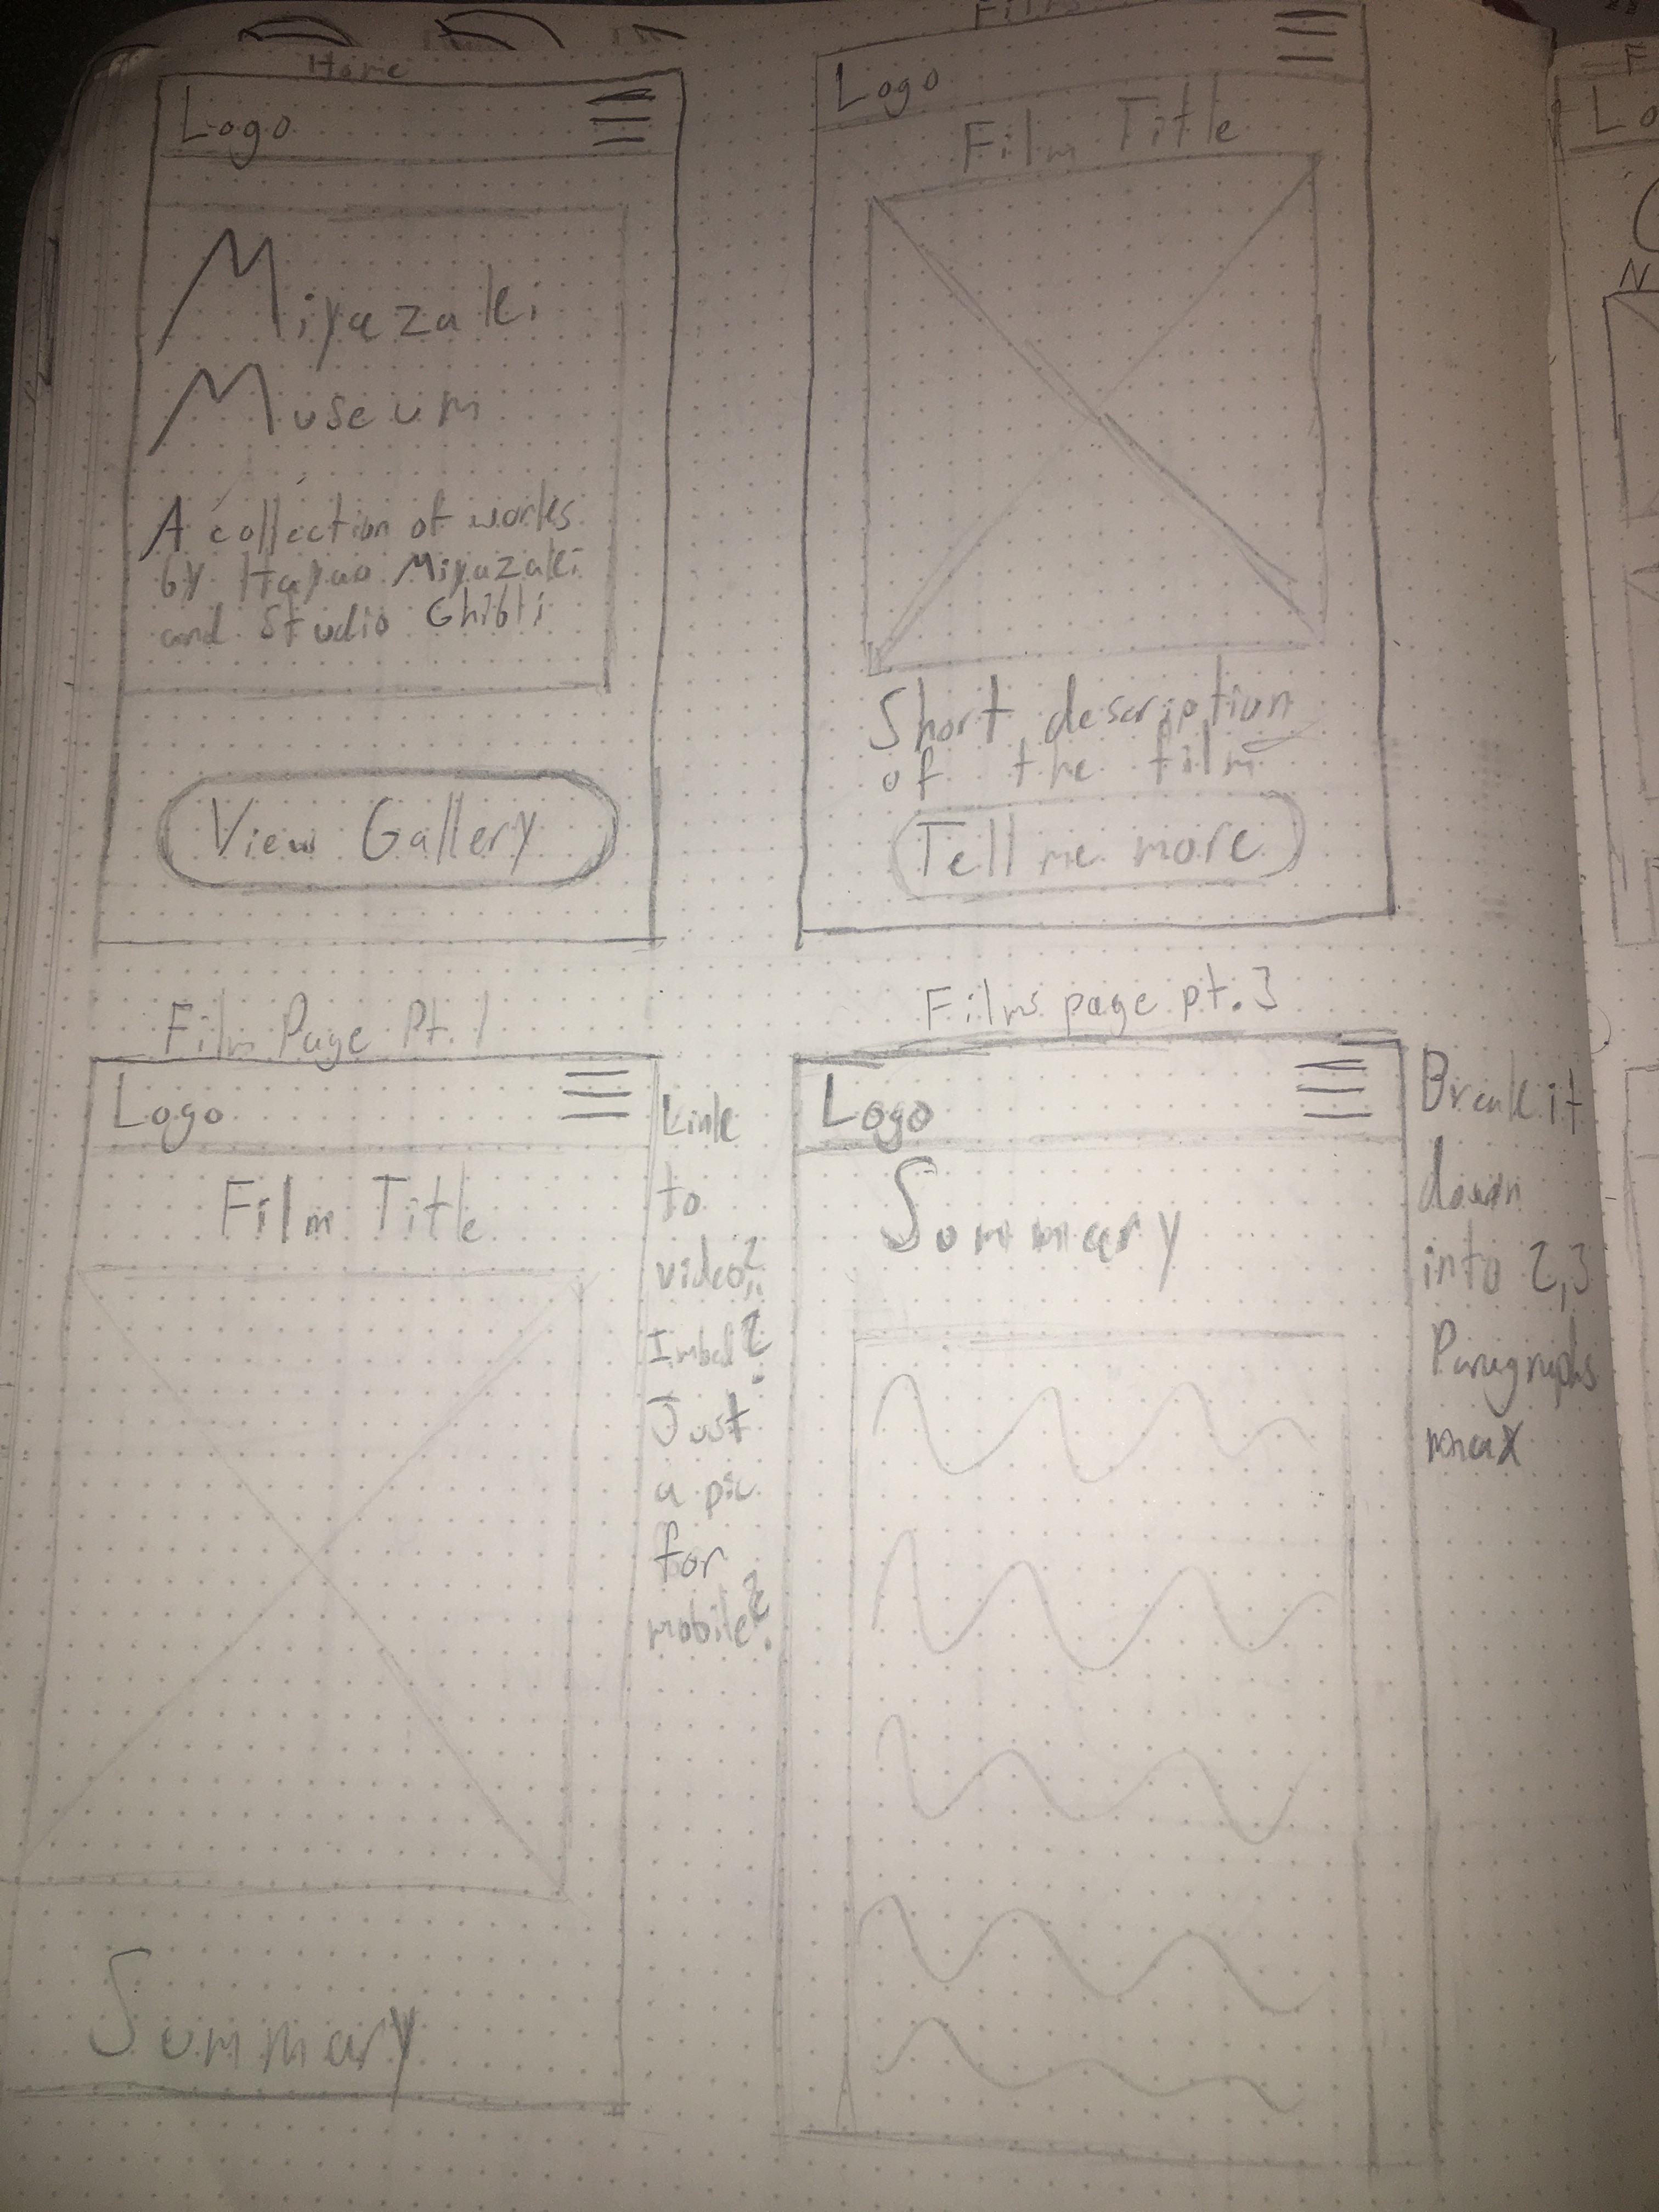 Home
Logo
Miyazaki
Museum
A collection of works
by Hayao Miyazaki
and Studio Ghibli
View Gallery
Films
Logo
Film Title
Short description
of the film
Tell me more
Film Page Pt. 1
Logo
Film Title
Summary
Link
to
video?
Imbed?
Just
a pic
for
mobile?
Films page pt. 3
Logo
Summary
Break it
down
into 2,3
Paragraphs
max
F
Lo
N